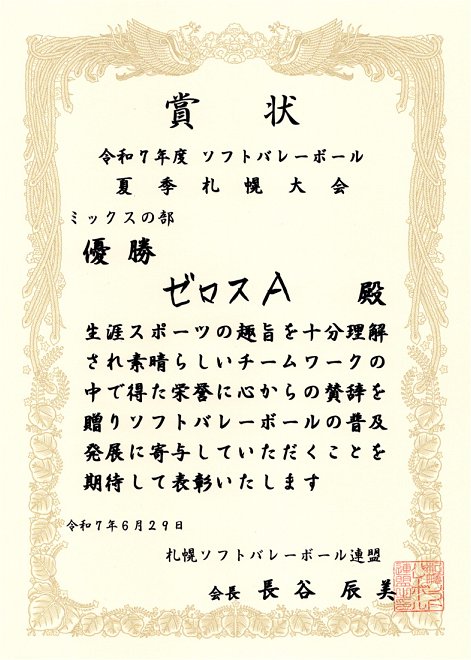 賞状
令和7年度 ソフトバレーボール
夏季札幌大会
ミックスの部
優勝
ゼロスA 殿
生涯スポーツの趣旨を十分理解
され素晴らしいチームワークの
中で得た栄誉に心からの賛辞を
贈りソフトバレーボールの普及
発展に寄与していただくことを
期待して表彰いたします
令和7年6月29日
札幌ソフトバレーボール連盟
会長 長谷辰美